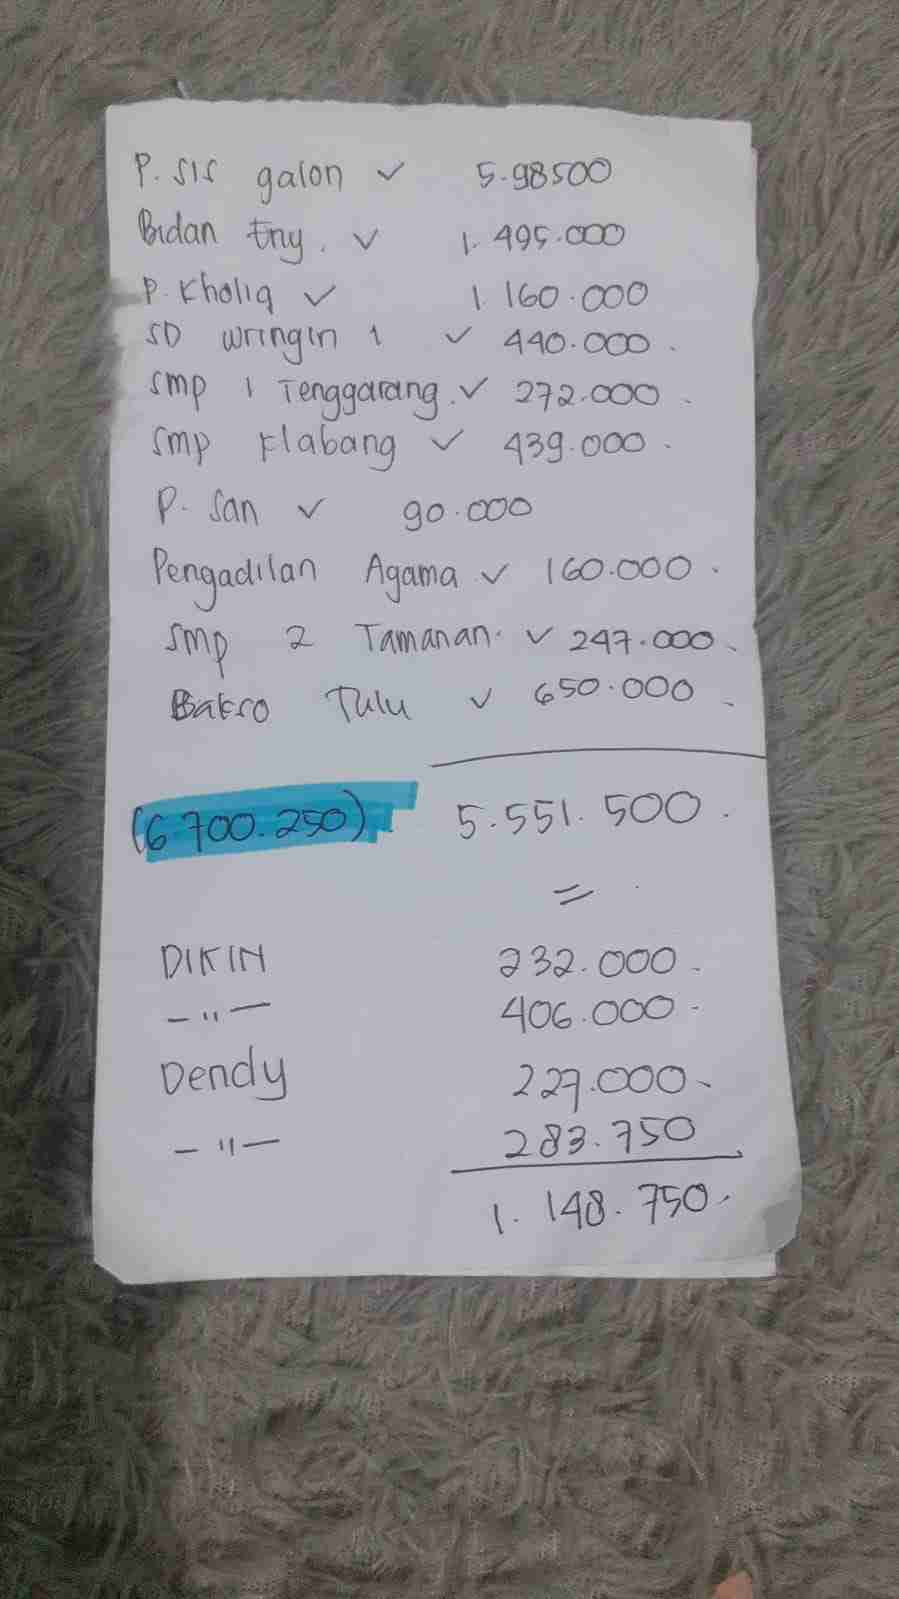 P. SIS galon ✓ 5.98500
Bidan Eny. ✓ 1.495.000
P. Kholiq ✓ 1.160.000
SD Wringin 1 ✓ 440.000.
Smp 1 Tenggarang. ✓ 272.000.
Smp Klabang ✓ 439.000.
P. San ✓ 90.000
Pengadilan Agama ✓ 160.000.
Smp 2 Tamanan. ✓ 247.000.
Bakso Tulu ✓ 650.000.
(6 700.250). 5.551.500.
=
DIKIN 232.000.
— " — 406.000.
Dendy 227.000.
— " — 283.750
1.148.750.